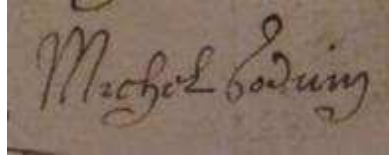 Michel Goduin